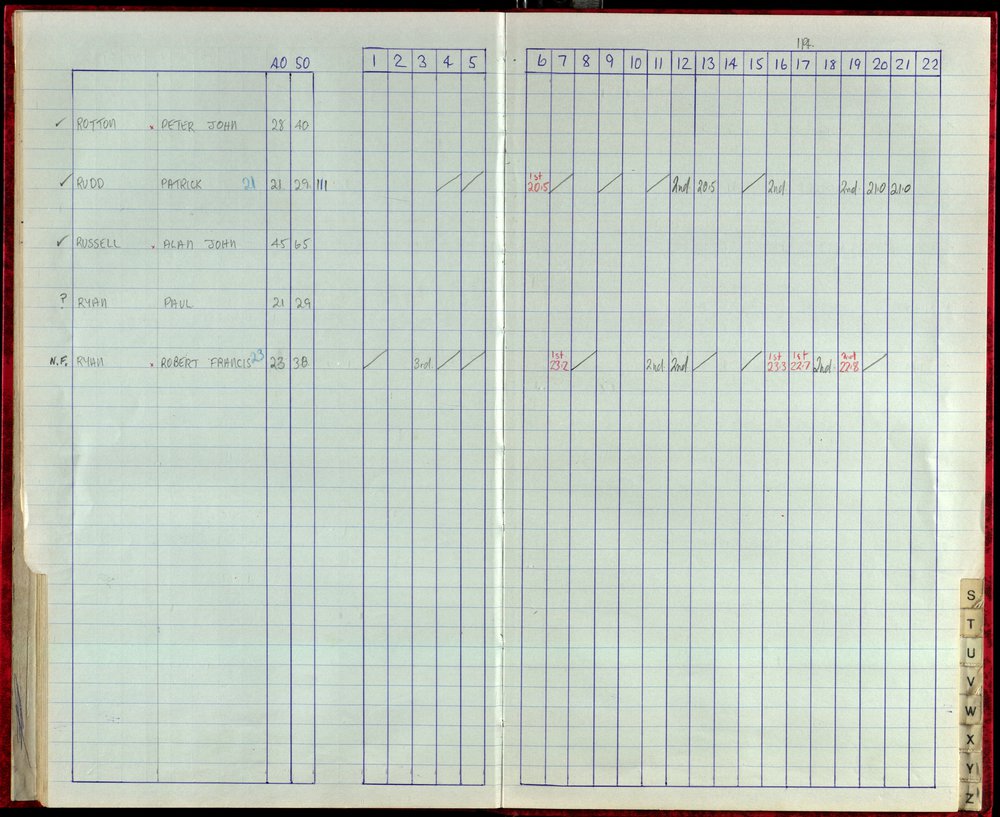 119.
40 50 1 2 3 4 5 6 7 8 9 10 11 12 13 14 15 16 17 18 19 20 21 22
✓ ROTTON . PETER JOHN 28 40
✓ RUDD PATRICK 21 21 29 111 / / 1st 20.5 / / / 2nd 20.5 / 2nd 2nd 21.0 21.0
✓ RUSSELL . ALAN JOHN 45 65
? RYAN PAUL 21 29
N.F. RYAN . ROBERT FRANCIS 23 23 38 / 3rd. / / 1st 23.2 / 2nd 2nd / / 1st 23.3 1st 22.7 2nd. 22.8 /
S
T
U
V
W
X
Y
Z